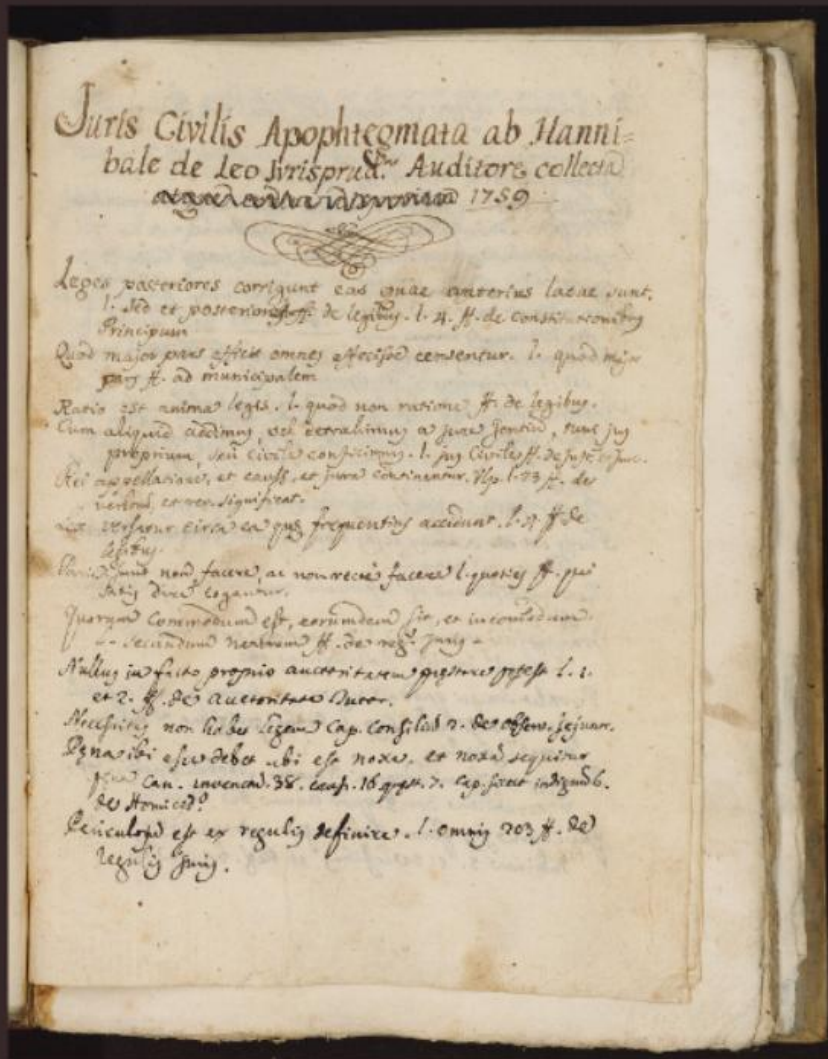 Juris Civilis Apophtegmata ab Hanni=
bale de Leo Jurisprud. Auditore collecta
1759
Leges posteriores corrigunt eas quae anterius latae sunt.
l. Sed et posteriores ff. de legibus. l. 4. ff. de Constitutionibus
Principum
Quod major pars efficit omnes effecisse censentur. l. quod major
pars ff. ad municipalem
Ratio est anima legis. l. quod non ratione ff. de legibus.
Cum aliquid addimus, vel detrahimus a jure gentium, tunc jus
proprium, seu civile conficimus. l. jus Civile ff. de Just. et Jure.
Rei appellatione, et causs. et jura continentur. Ulp. l. 23 ff. de
verbor. et rer. significat.
Lex versatur circa ea quę frequentius accidunt. l. ff de
legibus.
Paria sunt non facere, ac non recte facere l. quoties ff. qui
satis dare cogantur.
Quorum commodum est, eorumdem sit, et incomodum.
secundum naturam ff. de reg. juris
Nullus in facto proprio auctoritatem pręstare potest l. 1.
et 2. ff. de auctoritate Tutor.
Necessitas non habet legem Cap. Consilium 2. de observ. jejunior.
Pęna ibi esse debet ubi est noxa. et noxam sequitur
pęna Can. 38. caus. 16 quęst. 7. Cap. sicut indignum 6.
de Homicid.
Periculosum est ex regulis definire. l. omnis 203 ff. de
regulis juris.